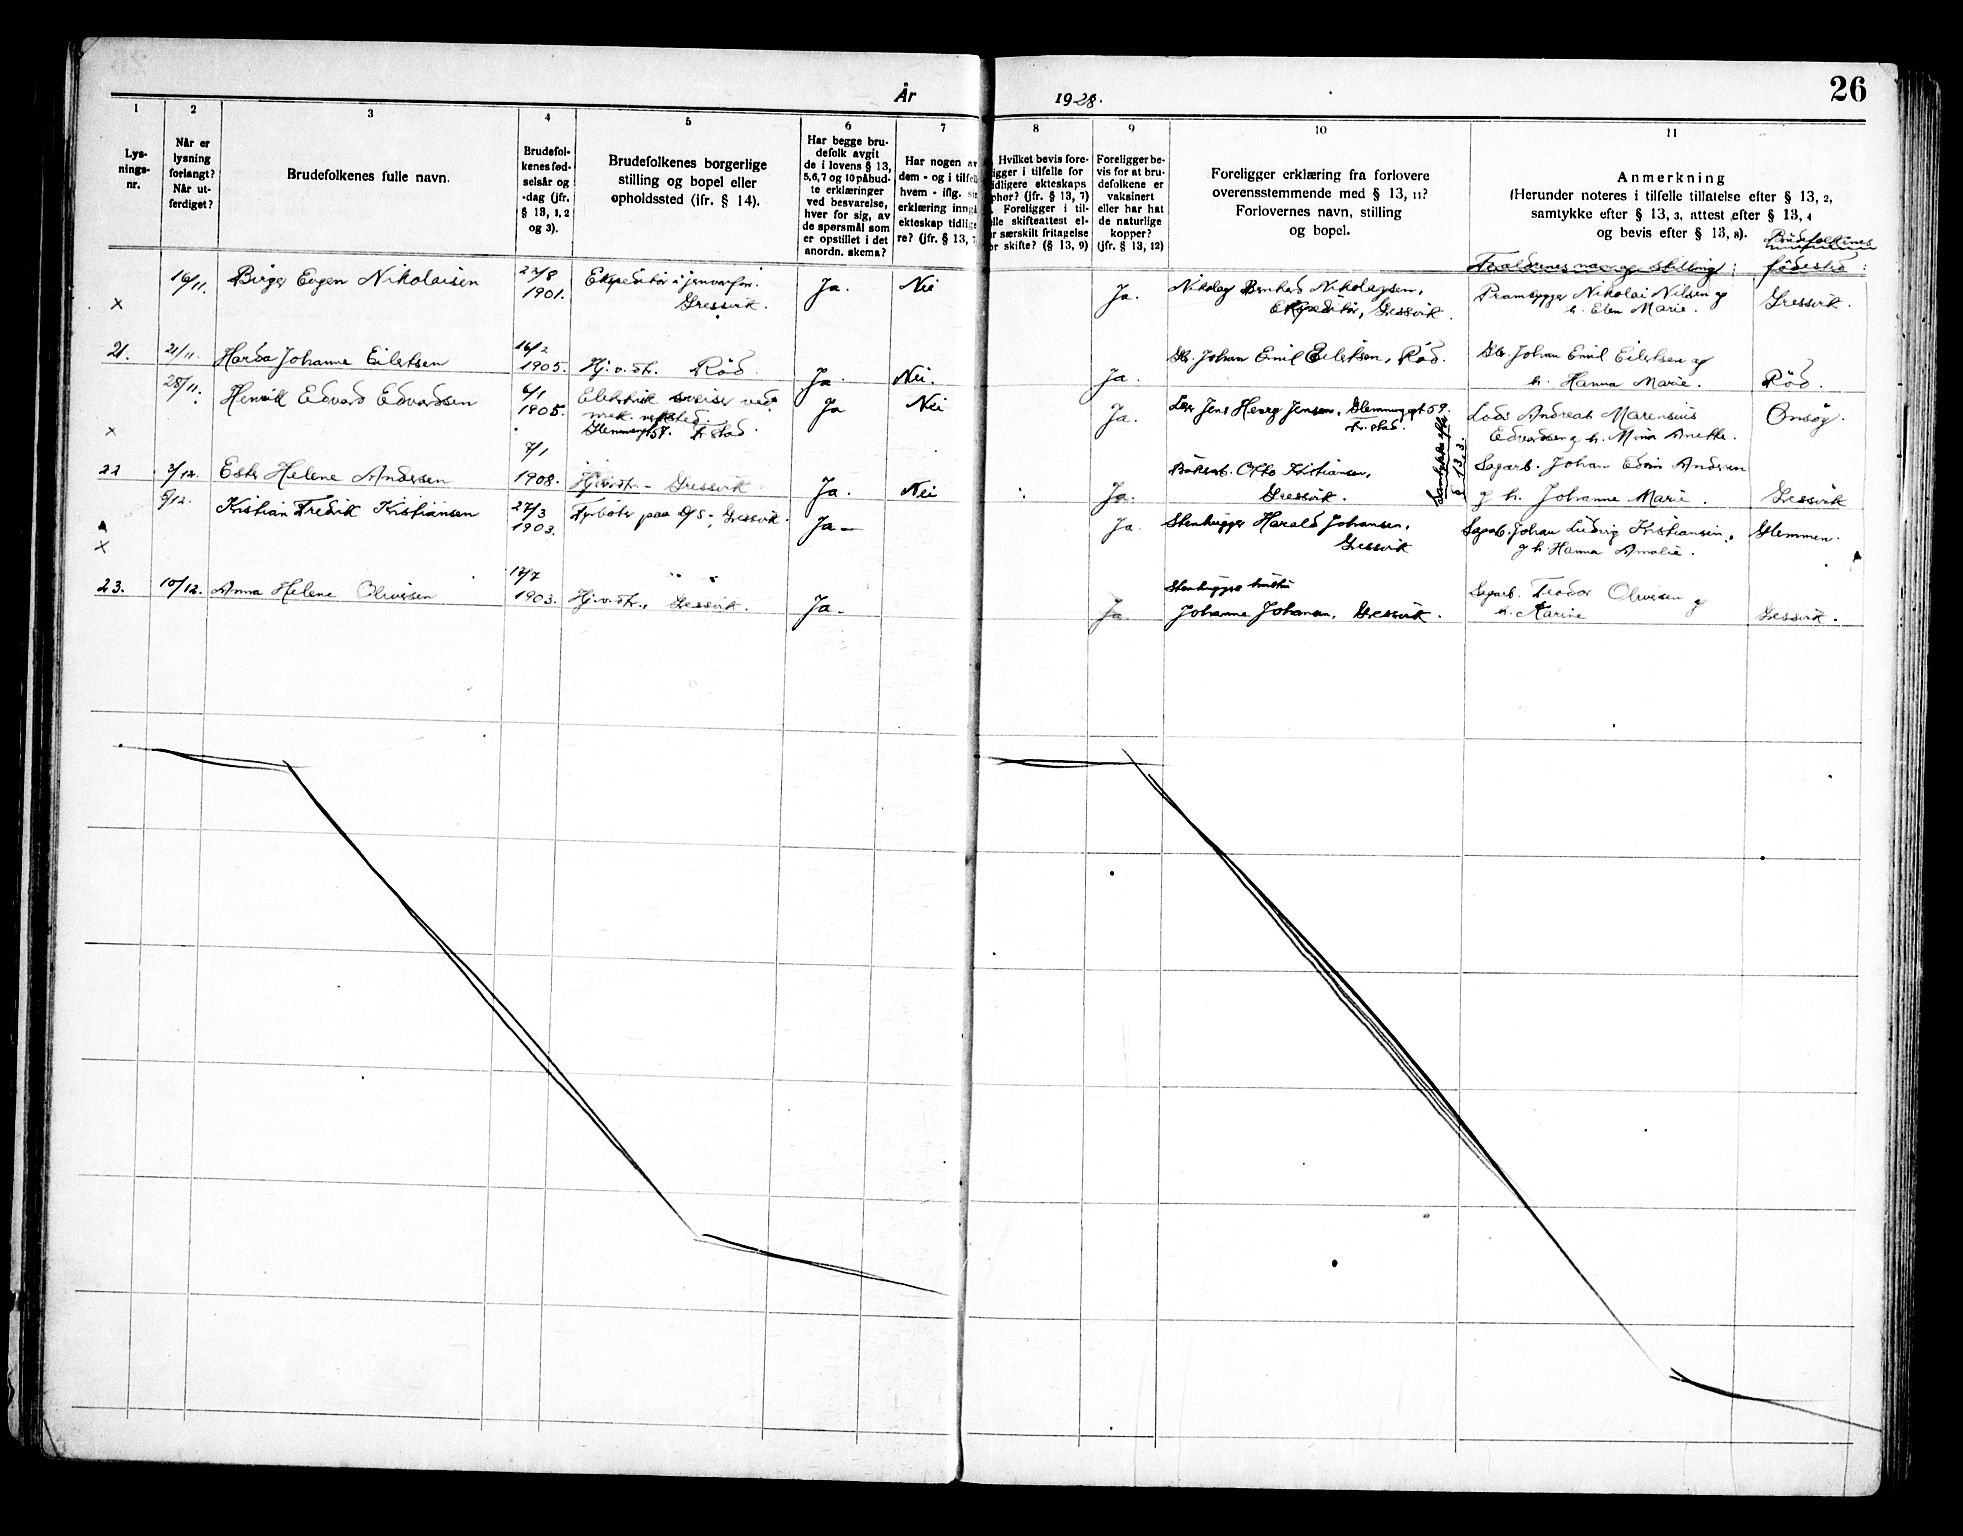 26
År 1928.
1 2 3 4 5 6 7 8 9 10 11
Lys-
nings-
nr.
Når er
lysning
forlangt?
Når ut-
ferdiget?
Brudefolkenes fulle navn.
Brudefol-
kenes fød-
selsår og
-dag (jfr.
§ 13, 1, 2
og 3).
Brudefolkenes borgerlige
stilling og bopel eller
opholdssted (ifr. § 14).
Har begge bru-
defolk avgit
de i lovens § 13,
5,6,7 og 10 påbud-
te erklæringer
ved besvarelse,
hver for sig, av
de spørsmål som
er opstillet i det
anordn. skema?
Har nogen av
dem - og i tilfelle
hvem - iflg. sin
erklæring inngå
ekteskap tidlige
re? (jfr. § 13, 7
Hvilket bevis fore-
igger i tilfelle for
idligere ekteskaps
phør? (jfr. § 13, 7)
Foreligger i til-
lle skifteattest el-
r særskilt fritagelse
or skifte? (§ 13, 9)
Foreligger be-
vis for at bru-
defolkene er
vaksinert
eller har hat
de naturlige
kopper?
(jfr. § 13, 12)
Foreligger erklæring fra forlovere
overensstemmende med § 13, 11?
Forlovernes navn, stilling
og bopel.
Anmerkning
(Herunder noteres i tilfelle tillatelse efter § 13, 2,
samtykke efter § 13, 3, attest efter § 13, 4
og bevis efter § 13, 8).
Forældrenes navn og stilling:
Brudefolkenes
födested:
16/11. Birger Eugen Nikolaisen 22/8
1901. Ekspeditör i jernvarefor.
Gressvik. Ja. Nei Ja. Nikolay Bernhard Nikolaysen,
Ekspeditör, Gressvik. Prambygger Nikolai Nilsen og
h. Elen Marie. Gressvik.
x
21. 21/11. Harda Johanne Eilertsen 16/2
1905. Hj. v. str. Röd Ja. Nei. Ja. Gb. Johan Emil Eilertsen, Röd. Gb. Johan Emil Eilertsen og
h. Hanna Marie. Röd.
28/11. Henrik Edvard Edvardsen 6/1
1905. Elektrisk sveiser ved
mek. verksted.
Glemmengt 57. Fr.stad. Ja Nei Ja. Jens Henry Jensen, Glemmengt 59.
Fr.stad. Andreas Marensius
Edvardsen og h. Mina Anette. Onsöy.
x
22 3/12. Ester Helene Andersen 7/1
1908. Hj.v.str. - Gressvik Ja. Nei Ja. Otto Kristiansen,
Gressvik. Samtykke efter
§ 13,3. Sagarb. Johan Edvin Andersen
og h. Johanne Marie. Gressvik
5/12. Kristian Fredrik Kristiansen 27/3
1903. Fyrböter paa D/S -, Gressvik. Ja - Ja. Stenhugger Harald Johansen,
Gressvik Sagarb. Johan Ludvig Kristiansen,
og h. Hanna Amalie. Glemmen.
x
23. 10/12. Anna Helene Oliversen 12/7
1903. Hj.v.str., Gressvik. Ja - Ja Stenhuggers hustru
Johanne Johansen, Gressvik. Sagarb. Teodor Oliversen og
h. Karine Gressvik.